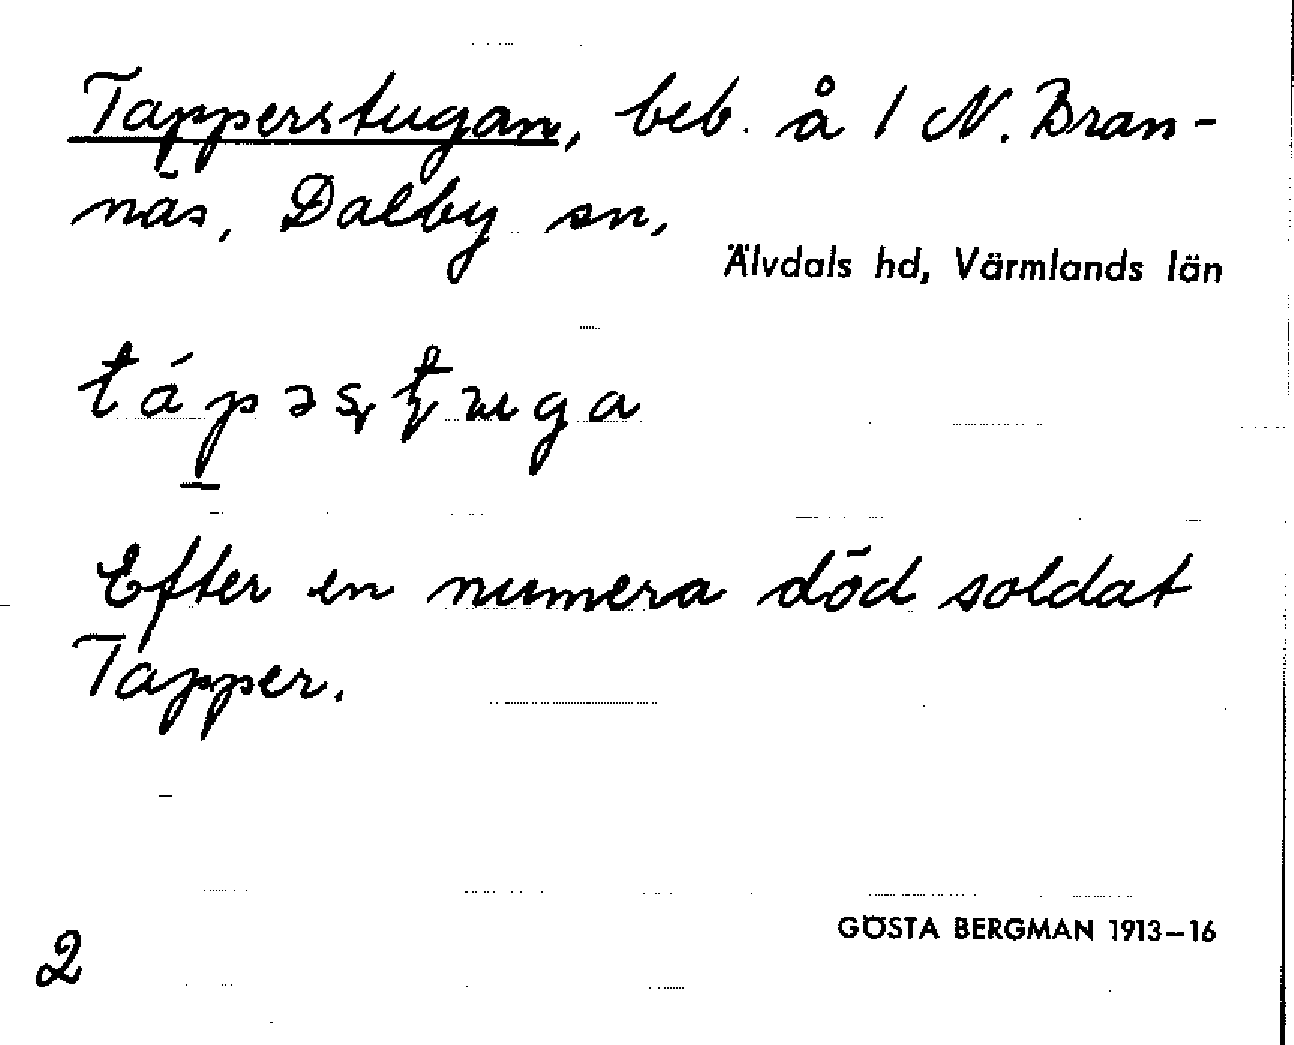 Tapperstugan, beb. å 1 N. Bran-
näs, Dalby sn,
Älvdals hd, Värmlands län
Efter en numera död soldat
Tapper.
GÖSTA BERGMAN 1913–16
2